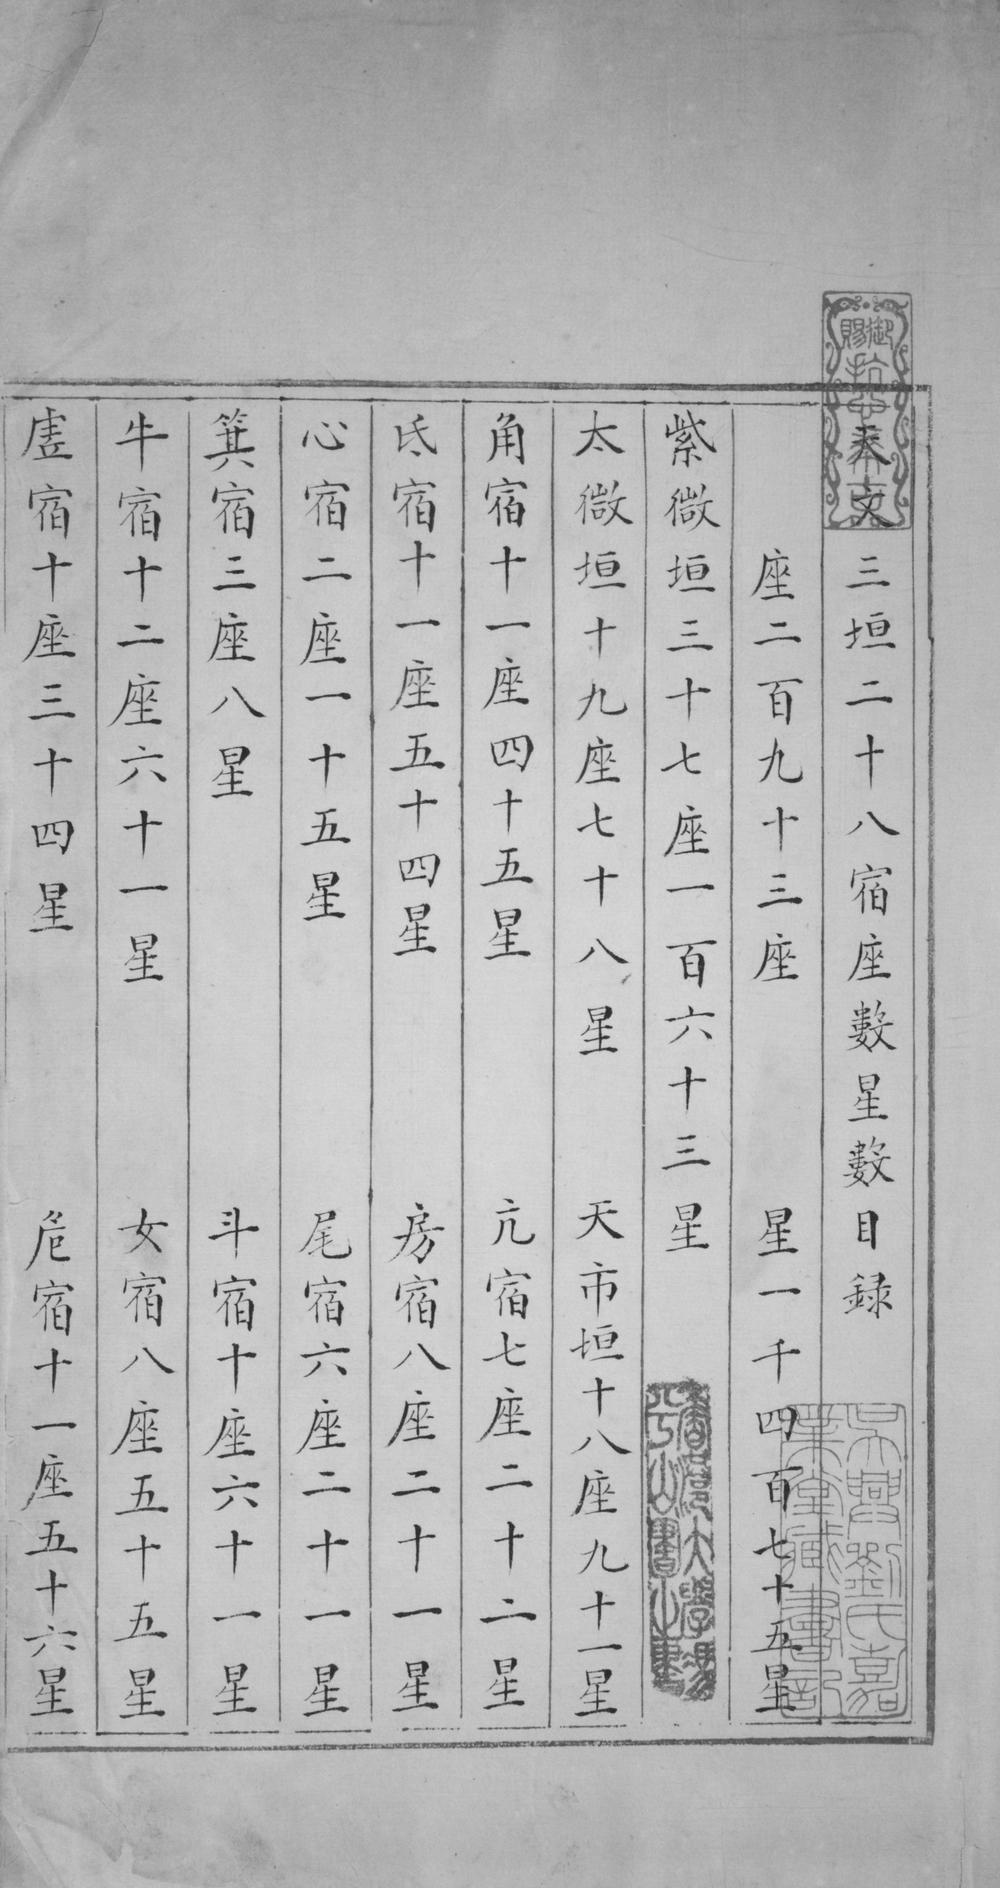 天文三垣二十八宿座數星數目録
座二百九十三座 星一千四百七十五星
紫微垣三十七座一百六十三星
太微垣十九座七十八星 天市垣十八座九十一星
角宿十一座四十五星 亢宿七座二十二星
氐宿十一座五十四星 房宿八座二十一星
心宿二座一十五星 尾宿六座二十一星
箕宿三座八星 斗宿十座六十一星
牛宿十二座六十一星 女宿八座五十五星
虗宿十座三十四星 危宿十一座五十六星
御賜抗心希古
吳興劉氏嘉業堂藏書記